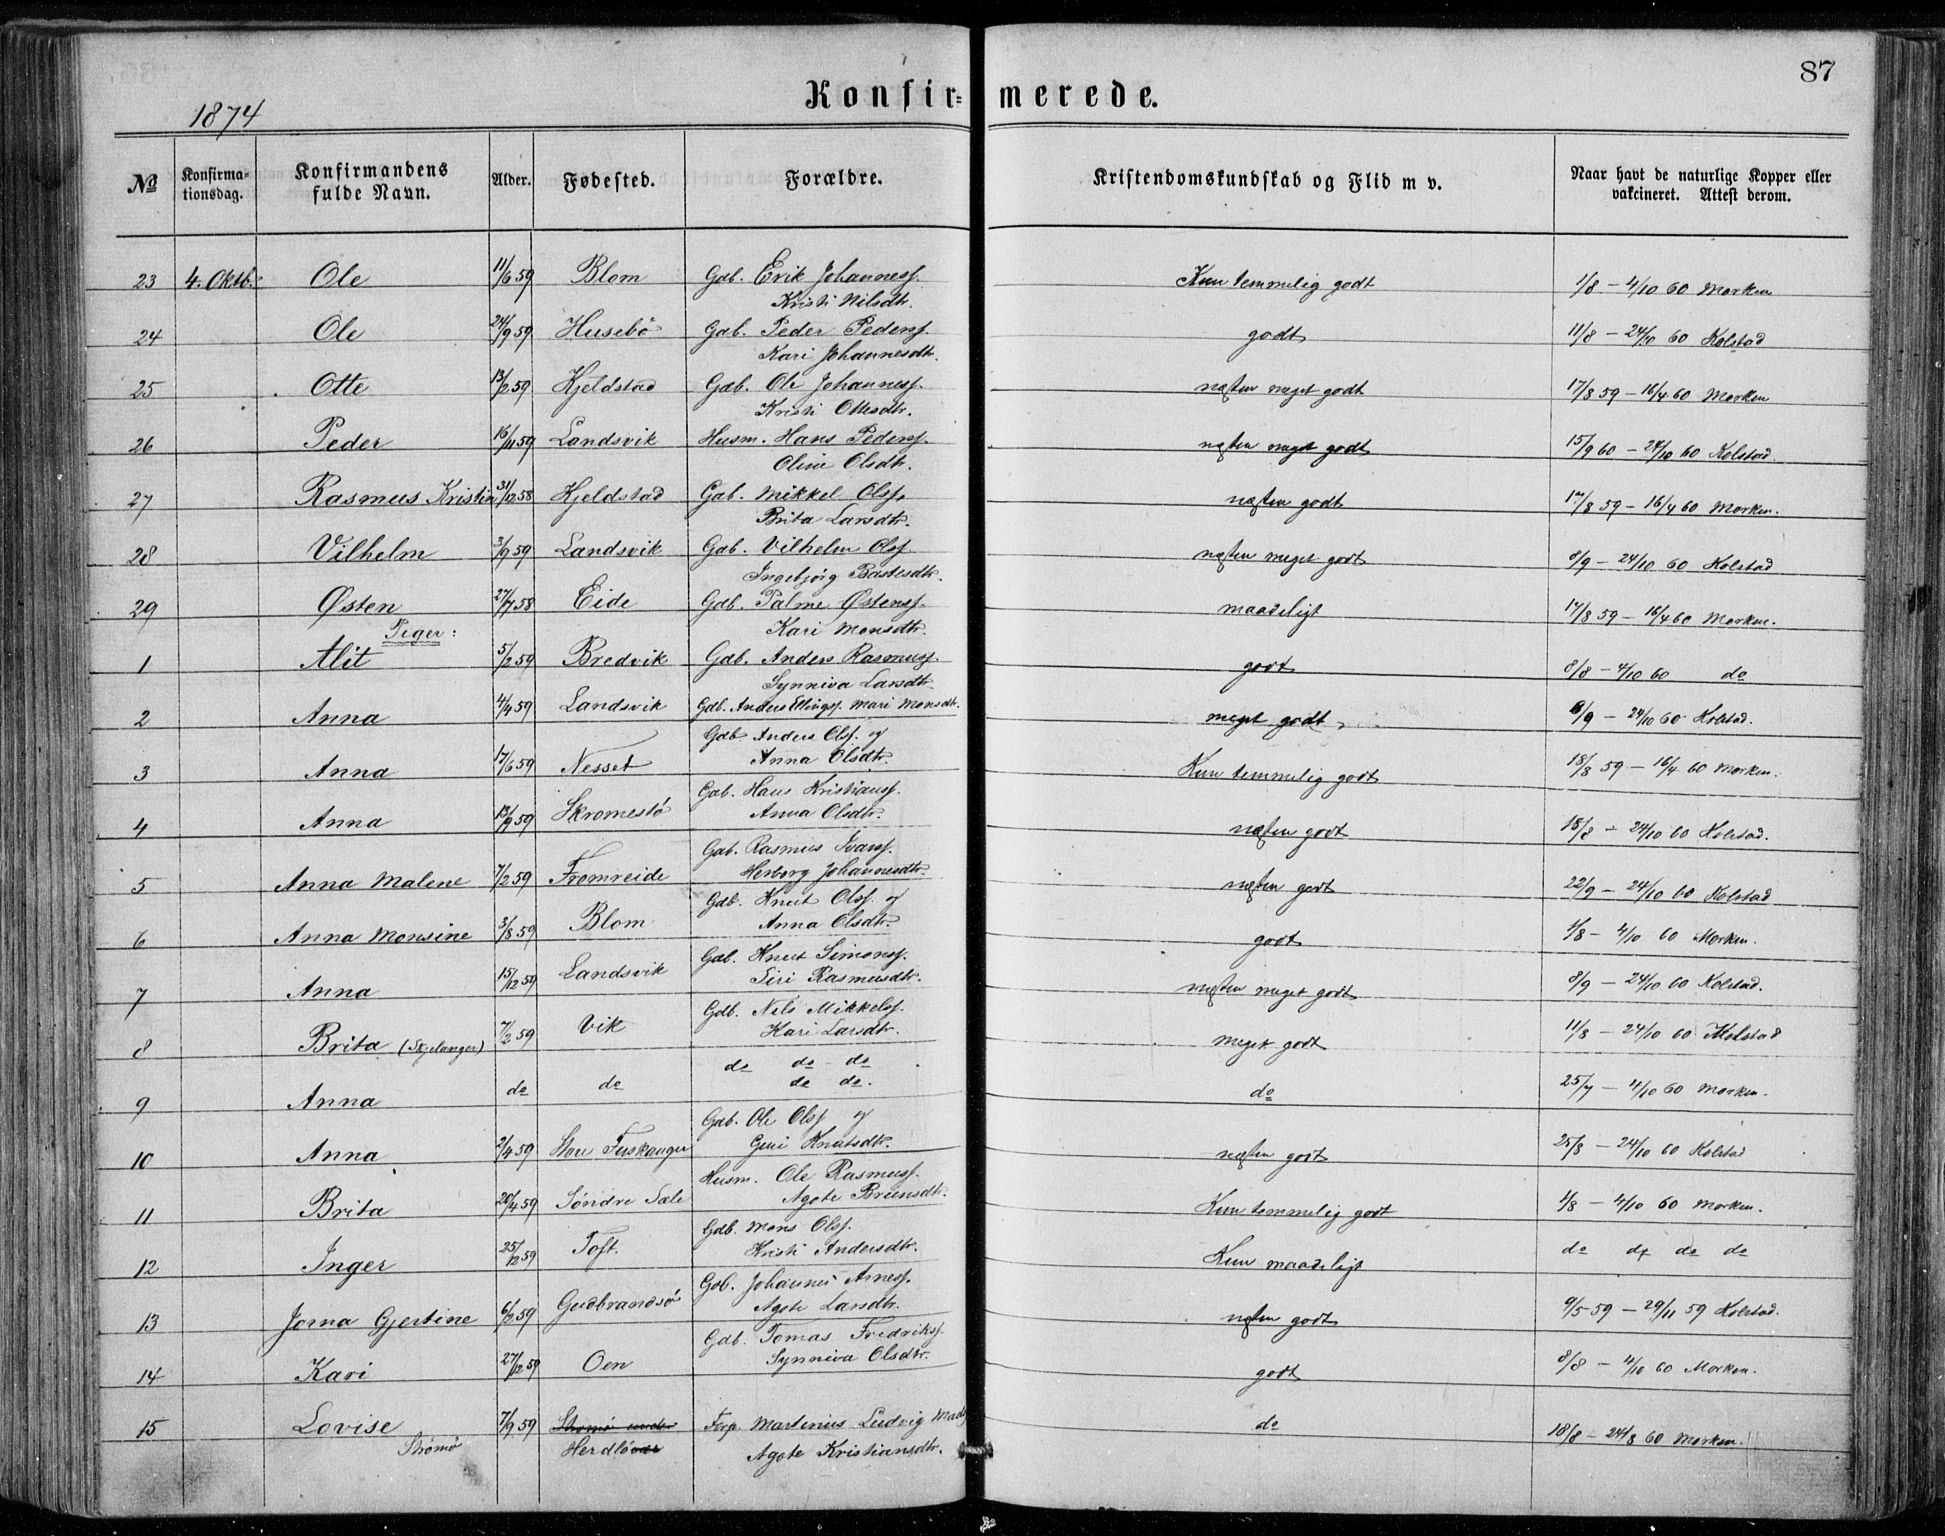 87
Konfirmerede.
1874
№ Konfirmationsdag. Konfirmandens fulde Navn. Alder. Fødested. Forældre. Kristendomskundskab og Flid m v. Naar havt de naturlige Kopper eller vakcineret. Attest derom.
23 4. Oktb. Ole 11/6 59 Blom Gdb. Erik Johannesf. Kun temmelig godt 1/8 – 4/10 60 Morken
Kristi Nilsdtr.
24 Ole 24/9 59 Husebø Gdb. Peder Pedersf. godt 11/8 – 24/10 60 Kolstad
Kari Johannesdtr.
25 Otte 13/2 59 Kjeldstad Gdb. Ole Johannesf. næsten meget godt 17/8 59 – 16/4 60 Morken
Kristi Ottesdtr.
26 Peder 16/11 59 Landsvik Husm. Hans Pedersf. næsten meget godt 15/9 60 – 24/10 60 Kolstad.
Oline Olsdtr.
27 Rasmus Kristian 31/12 58 Kjeldstad Gdb. Mikkel Olsf. næsten godt 17/8 59 – 16/4 60 Morken.
Brita Larsdtr.
28 Vilhelm 3/9 59 Landsvik Gdb. Vilhelm Olsf. næsten meget godt 8/9 – 24/10 60 Kolstad
Ingebjørg Bastesdtr.
29 Østen 27/7 58 Eide Gdb. Palme Østensf. maadeligt 17/8 59 – 16/4 60 Morken.
Piger: Kari Monsdtr.
1 Alit 5/2 59 Bredvik Gdb. Anders Rasmusf. godt 8/8 – 4/10 60 do
Synniva Larsdtr.
2 Anna 4/4 59 Landsvik Gdb. Anders Ellingsf. Mari Monsdtr. meget godt 8/9 – 24/10 60 Kolstad.
Gdb. Anders Olsf. og
3 Anna 17/6 59 Nesset Anna Olsdtr. Kun temmelig godt 18/8 59 – 16/4 60 Morken.
Gdb. Hans Kristiansf.
4 Anna 13/9 59 Skromestø Anna Olsdtr. næsten godt 18/8 – 24/10 60 Kolstad.
Gdb. Rasmus Ivarsf.
5 Anna Malene 7/2 59 Fromreide Herborg Johannesdtr. næsten godt 22/9 – 24/10 60 Kolstad
Gdb. Knut Olsf. og
6 Anna Monsine 3/8 59 Blom Anna Olsdtr. godt 1/8 – 4/10 60 Morken.
Gdb. Knut Simonsf.
7 Anna 15/12 59 Landsvik Siri Rasmusdtr. næsten meget godt 8/9 – 24/10 60 Kolstad.
Gdb. Nils Mikkelsf.
8 Brita (Skjelanger) 7/2 59 Vik Kari Larsdtr. meget godt 11/8 – 24/10 60 Kolstad
do do do
9 Anna do do do do. do 25/7 – 4/10 60 Morken.
Gdb. Ole Olsf. og
10 Anna 2/4 59 Store Fuskanger Guri Knutsdtr. næsten godt 25/8 – 24/10 60 Kolstad
Husm. Ole Rasmusf.
11 Brita 20/4 59 Søndre Sæle Agote Brunsdtr. Kun temmelig godt 1/8 – 4/10 60 Morken.
Gdb. Mons Olsf.
12 Inger 25/12 59 Toft. Kristi Andersdtr. Kun maadeligt do do do do
Gdb. Johannes Arnesf.
13 Jorna Gjertine 6/2 59 Gudbrandsø Agote Larsdtr. næsten godt 9/5 59 – 29/11 59 Kolstad.
Gdb. Tomas Fredriksf.
14 Kari 27/12 59 Oen Synniva Olsdtr. godt 8/8 – 4/10 60 Morken.
15 Lovise 7/9 59 Strømø under Forp. Martinius Ludvig Mads do 18/8 – 24/8 60 Morken.
Strømø Herdløvær Agote Kristiansdtr.